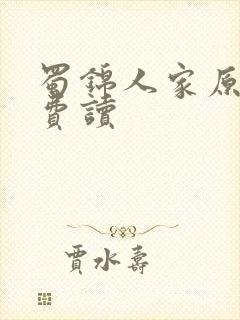 蜀錦人家原
費讀
賈水壽